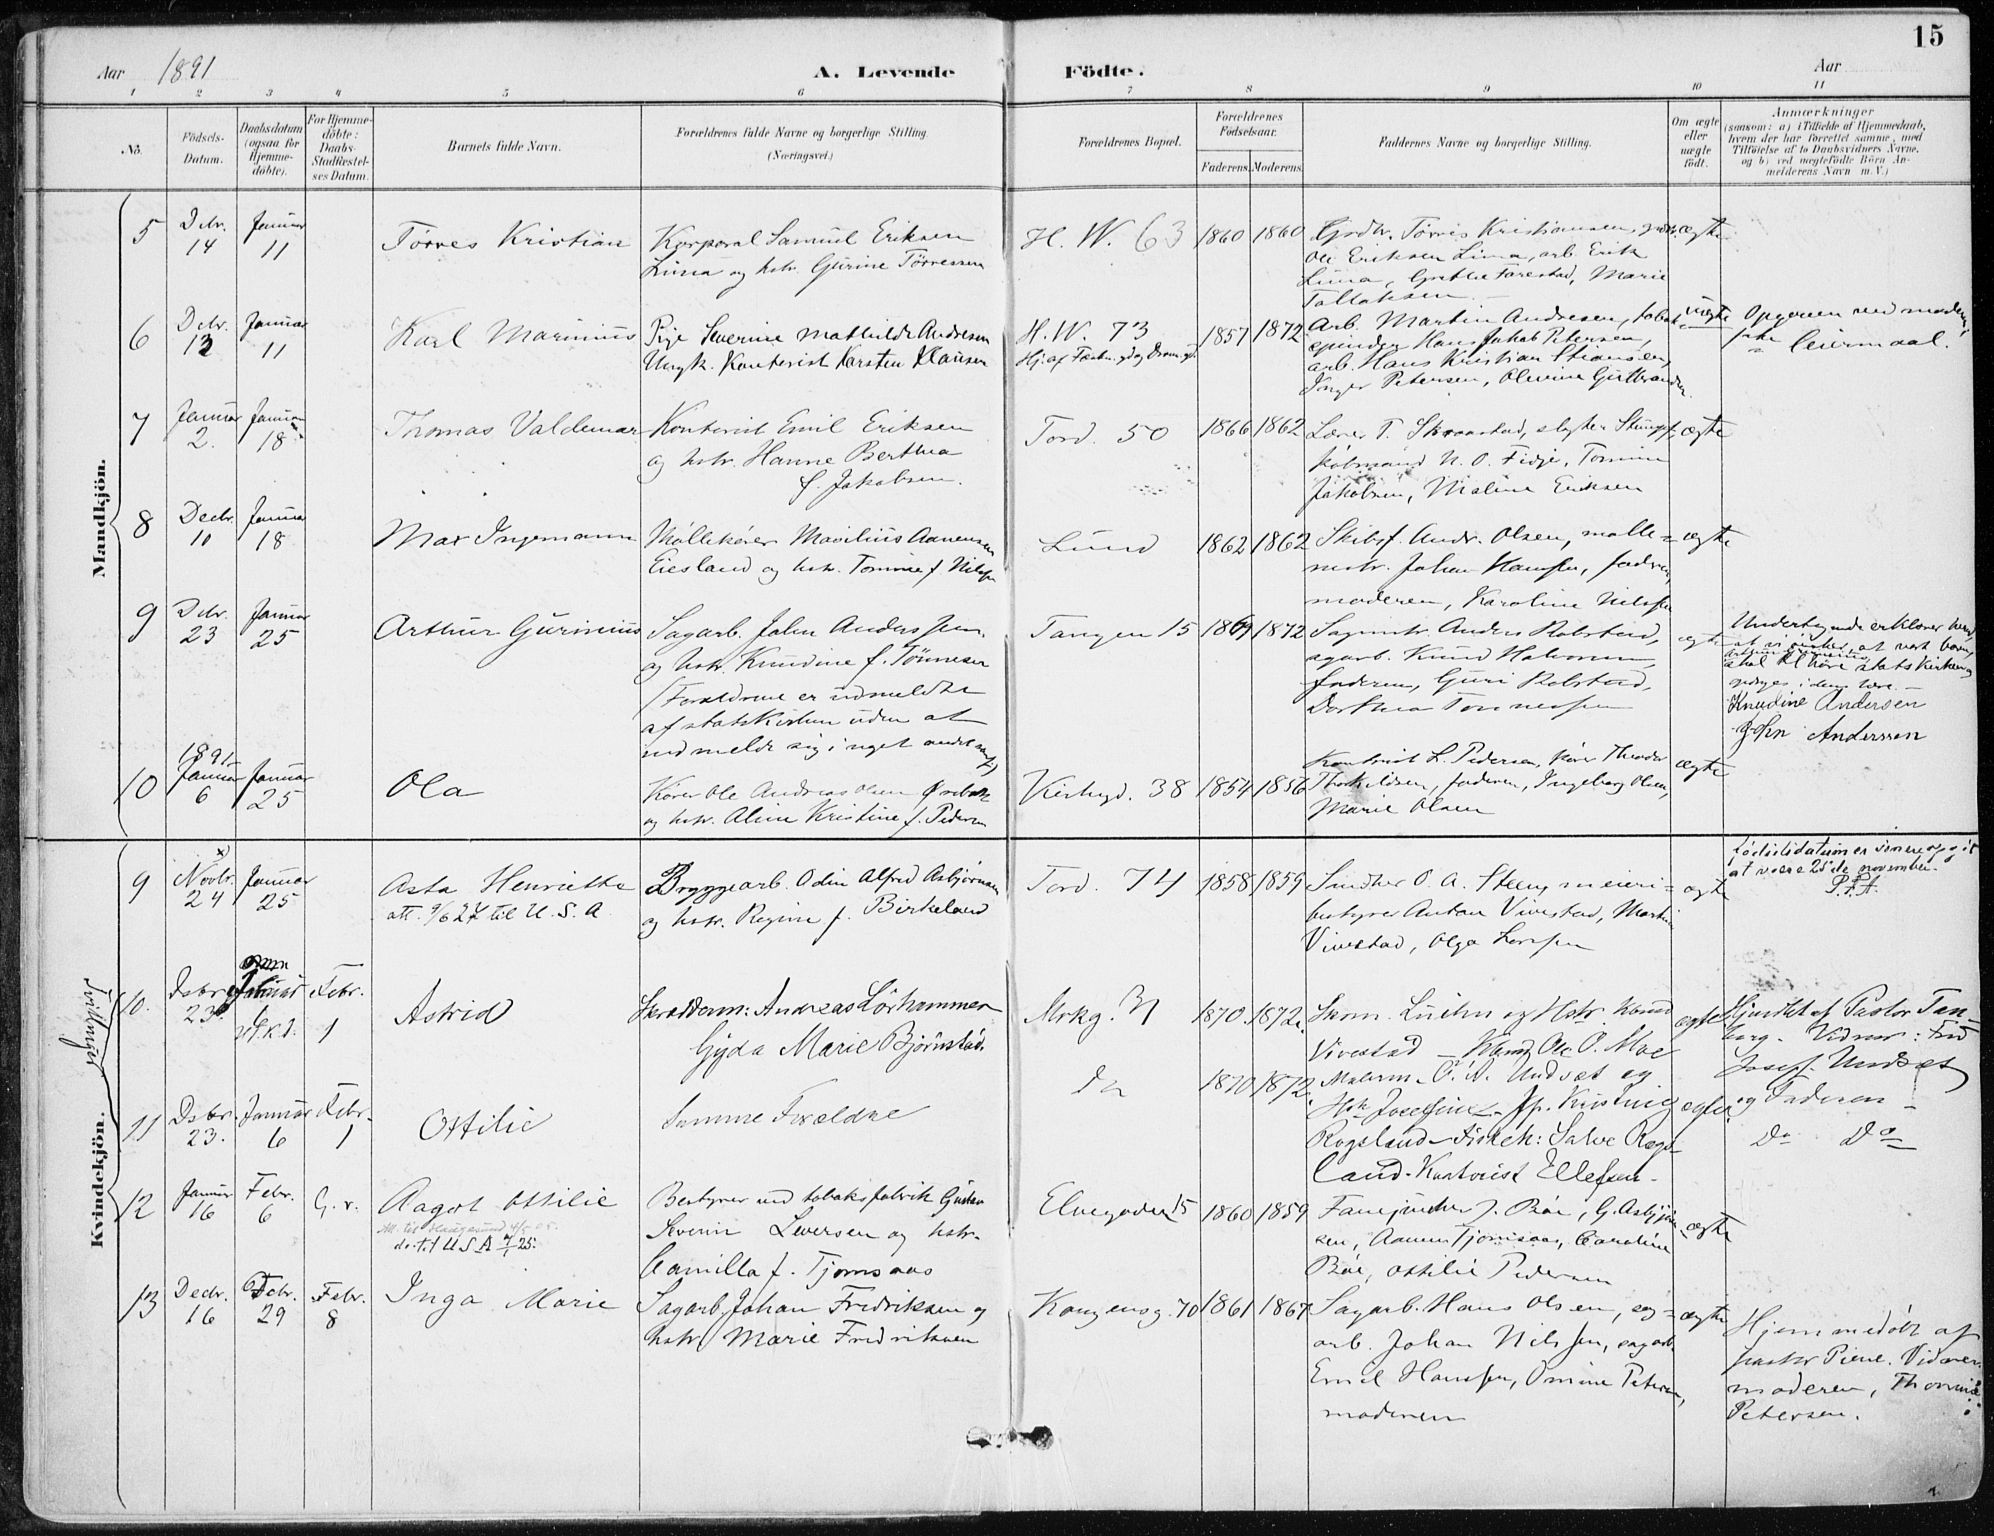 15
Aar 1891
A. Levende Födte.
Aar
1 2 3 4 5 6 7 8 9 10 11
No.
Födsels-Datum.
Daabsdatum (ogsaa for Hjemme-döbte).
For Hjemme-döbte: Daabs-Stadfæstel-ses Datum.
Barnets fulde Navn.
Forældrenes fulde Navne og borgerlige Stilling.
(Næringsvei.)
Forældrenes Bopæl.
Forældrenes Födselsaar.
Faderens. Moderens.
Faddernes Navne og borgerlige Stilling.
Om ægte eller uægte födt.
Anmærkninger
(saasom: a) i Tilfælde af Hjemmedaab,
hvem der har forrettet samme, med
Tilföielse af to Daabsvidners Navne,
og b) ved uægtefödte Börn An-
melderens Navn m. V.)
Mandkjön.
5 Debr. 14 Januar 11 Tørres Kristian
Korporal Samuel Eriksen
Lima og hstr. Gurine Tørressen
H. W. 63 1860 1860
Grdbr. Tørris Kristiansen,
Ole Eriksen Lima, arb. Erik
Lima, Grethe Farestad, Marie
Tallaksen
ægte
6 Debr. 12 Januar 11 Karl Marinius
Pige Severine Mathilde Andresen
Ungk. Kontorist Karsten Klausen
H. W. 73
1857 1872
Arb. Martin Andresen,
spinder Hans Jakob Petersen,
arb. Hans Kristian
Inger Petersen, Olevine
uægte
Opgiven ved moderen,
leiermaal.
7 Januar 2. Januar 18 Thomas Valdemar
Kontorist Emil Eriksen
og hstr. Hanne Berthea
f. Jakobsen.
Tord. 50 1866 1862
Lærer T. slagter
købmand N. O. Fidje, Tomine
Jakobsen, Maline Eriksen
ægte
8 Decbr. 10 Januar 18 Max Ingemann
Møllekører Aanensen
Eiesland og hstr. Tomine f. Nilsen
Lund 1862 1862
Skibsf. Andr. Olsen, mølle-
mstr. Johan Hansen, faderen,
moderen, Karoline Nilssen
ægte
9 Debr. 23 Januar 25 Arthur Gurinius
Sagarb. John Anderssen
og hstr. Knudine f. Tønnesen
(Forældrene er udmeldte
af statskirken uden at
indmelde sig i noget andet
Tangen 15 1869 1872
Sagmstr. Anders Rolstad,
sagarb. Knud Halvorsen,
faderen, Guri Rolstad,
Dorthea Tønnessen
ægte
Undertegnede erklærer herved
at vi ønsker, at vort barn,
Arthur Gurinius,
skal tilhøre statskirken og
opdrages i dens lære. –
Knudine Andersen
John Anderssen
10 1891 Januar 6 Januar 25 Ola
Kører Ole Andreas Olsen
og hstr. Aline Kristine f. Pedersen
Kirkegd. 38 1854 1856
Kontorist L. Pedersen, kører Theodor
Thorkildsen, faderen, Ingeborg Olsen,
Marie Olsen
ægte
Kvindekjön.
9 Novbr. x 24 Januar 25 Asta Henriette
att. 9/6 27 til U. S. A.
Bryggearb. Odin Alfred Asbjørnsen
og hstr. Regine f. Birkeland
Tord. 74 1858 1859
Snedker O. A. Steen, meieri-
bestyrer Anton Vivestad, Martin
Vivestad, Olga Larssen
ægte
Fødselsdatum er senere opgit
at være 25de november.
P.F.A.
Tvillinger
10. Dsbr. 23. Januar 6 Febr. 1 Astrid
Skrædderm: Andreas Lørhammer
Gyda Marie Bjørnstad.
Mrkg. 31 1870. 1872.
Skom. og Hstr. Knud
Vivestad – Ole O. Moe
ægte
Hjemdøbt af Pastor Tan-
berg. Vidner: Fru
Josef. Undset
og Faderen –
11 Dsbr. 23. Januar 6 Febr. 1 Ottilie
Samme Forældre
Do 1870 1872.
Malerm. O. A. Undset og
Hst. Josefine – Jfr. Kristine
Rogsland – Fiskeh: Salve Rogs-
land – Kontorist Ellefsen –
ægte
Do Do
12 Januar 16 Febr. 6 G. v. Aagot Ottilie
Att. til Haugesund 4/5 05.
do til U S A 7/1 25.
Bestyrer ved tobaksfabrik Gustav
Severin Leversen og hstr.
Camilla f. Tjomsaas
Elvegaden 15 1860 1859
Fanejunker J. Bøe, G. Asbjørn-
sen, Aanen Tjomsaas, Caroline
Bøe, Ottilie Pedersen
ægte
13 Decbr. 16 Debr. 29 Febr. 8 Inga Marie
Sagarb. Johan Fredriksen og
hstr. Marie Fredriksen
Kongensg. 70 1861 1867.
Sagarb. Hans Olsen, sag-
arb. Johan Nilssen, sagarb.
Emil Hanssen, Omine Petersen,
moderen
ægte
Hjemmedøbt af
pastor Piene. Vidner:
moderen, Thomine
Petersen.